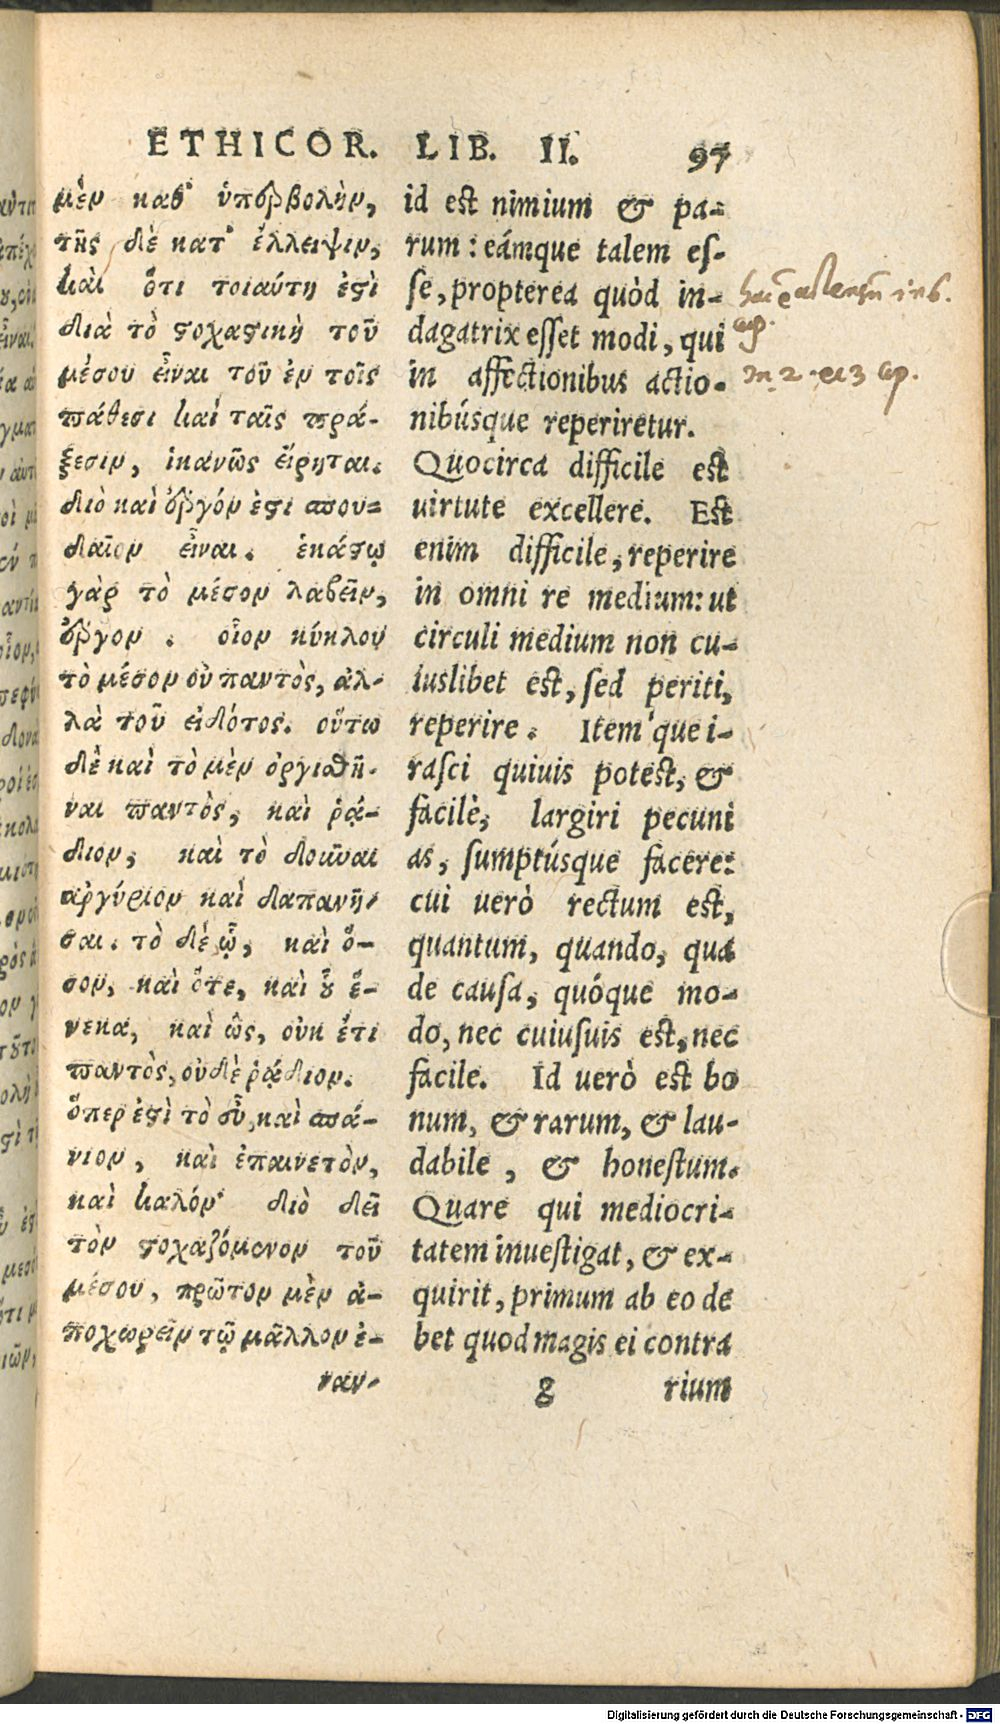 ETHICOR. LIB. II. 97
μὲν καθ' ὑπερβολὴν,
τῆς δὲ κατ' ἔλλειψιν,
καὶ ὅτι τοιαύτη ἐστὶ
διὰ τὸ στοχαστικὴ τοῦ
μέσου εἶναι τοῦ ἐν τοῖς
πάθεσι καὶ ταῖς πρά-
ξεσιν, ἱκανῶς εἴρηται.
διὸ καὶ ἔργόν ἐστι σπου-
δαῖον εἶναι. ἑκάστῳ
γὰρ τὸ μέσον λαβεῖν,
ἔργον. οἷον κύκλου
τὸ μέσον οὐ παντὸς, ἀλ-
λὰ τοῦ εἰδότος. οὕτω
δὲ καὶ τὸ μὲν ὀργισθῆ-
ναι παντὸς, καὶ ῥᾴ-
διον, καὶ τὸ δοῦναι
ἀργύριον καὶ δαπανῆ-
σαι. τὸ δέ ᾧ, καὶ ὅ-
σον, καὶ ὅτε, καὶ οὗ ἕ-
νεκα, καὶ ὣς, οὐκ ἔτι
παντὸς, οὐδὲ ῥᾴδιον.
ὅπερ ἐστὶ τὸ εὖ, καὶ σπά-
νιον, καὶ ἐπαινετὸν,
καὶ καλόν· διὸ δεῖ
τὸν στοχαζόμενον τοῦ
μέσου, πρῶτον μὲν ἀ-
ποχωρεῖν τῷ μᾶλλον ἐ-
ναν-
id est nimium & pa-
rum: eámque talem es-
se, propterea quòd in-
dagatrix esset modi, qui
in affectionibus actio-
nibúsque reperiretur.
Quocirca difficile est
uirtute excellere. Est
enim difficile, reperire
in omni re medium: ut
circuli medium non cu-
iuslibet est, sed periti,
reperire. Item'que i-
rasci quiuis potest, &
facilè, largiri pecuni
as, sumptúsque facere:
cui uerò rectum est,
quantum, quando, qua
de causa, quóque mo-
do, nec cuiusuis est, nec
facile. Id uerò est bo
num, & rarum, & lau-
dabile, & honestum.
Quare qui mediocri-
tatem inuestigat, & ex-
quirit, primum ab eo de
bet quod magis ei contra
g rium
cap.
in 2 et 3 cap.
Digitalisierung gefördert durch die Deutsche Forschungsgemeinschaft - DFG